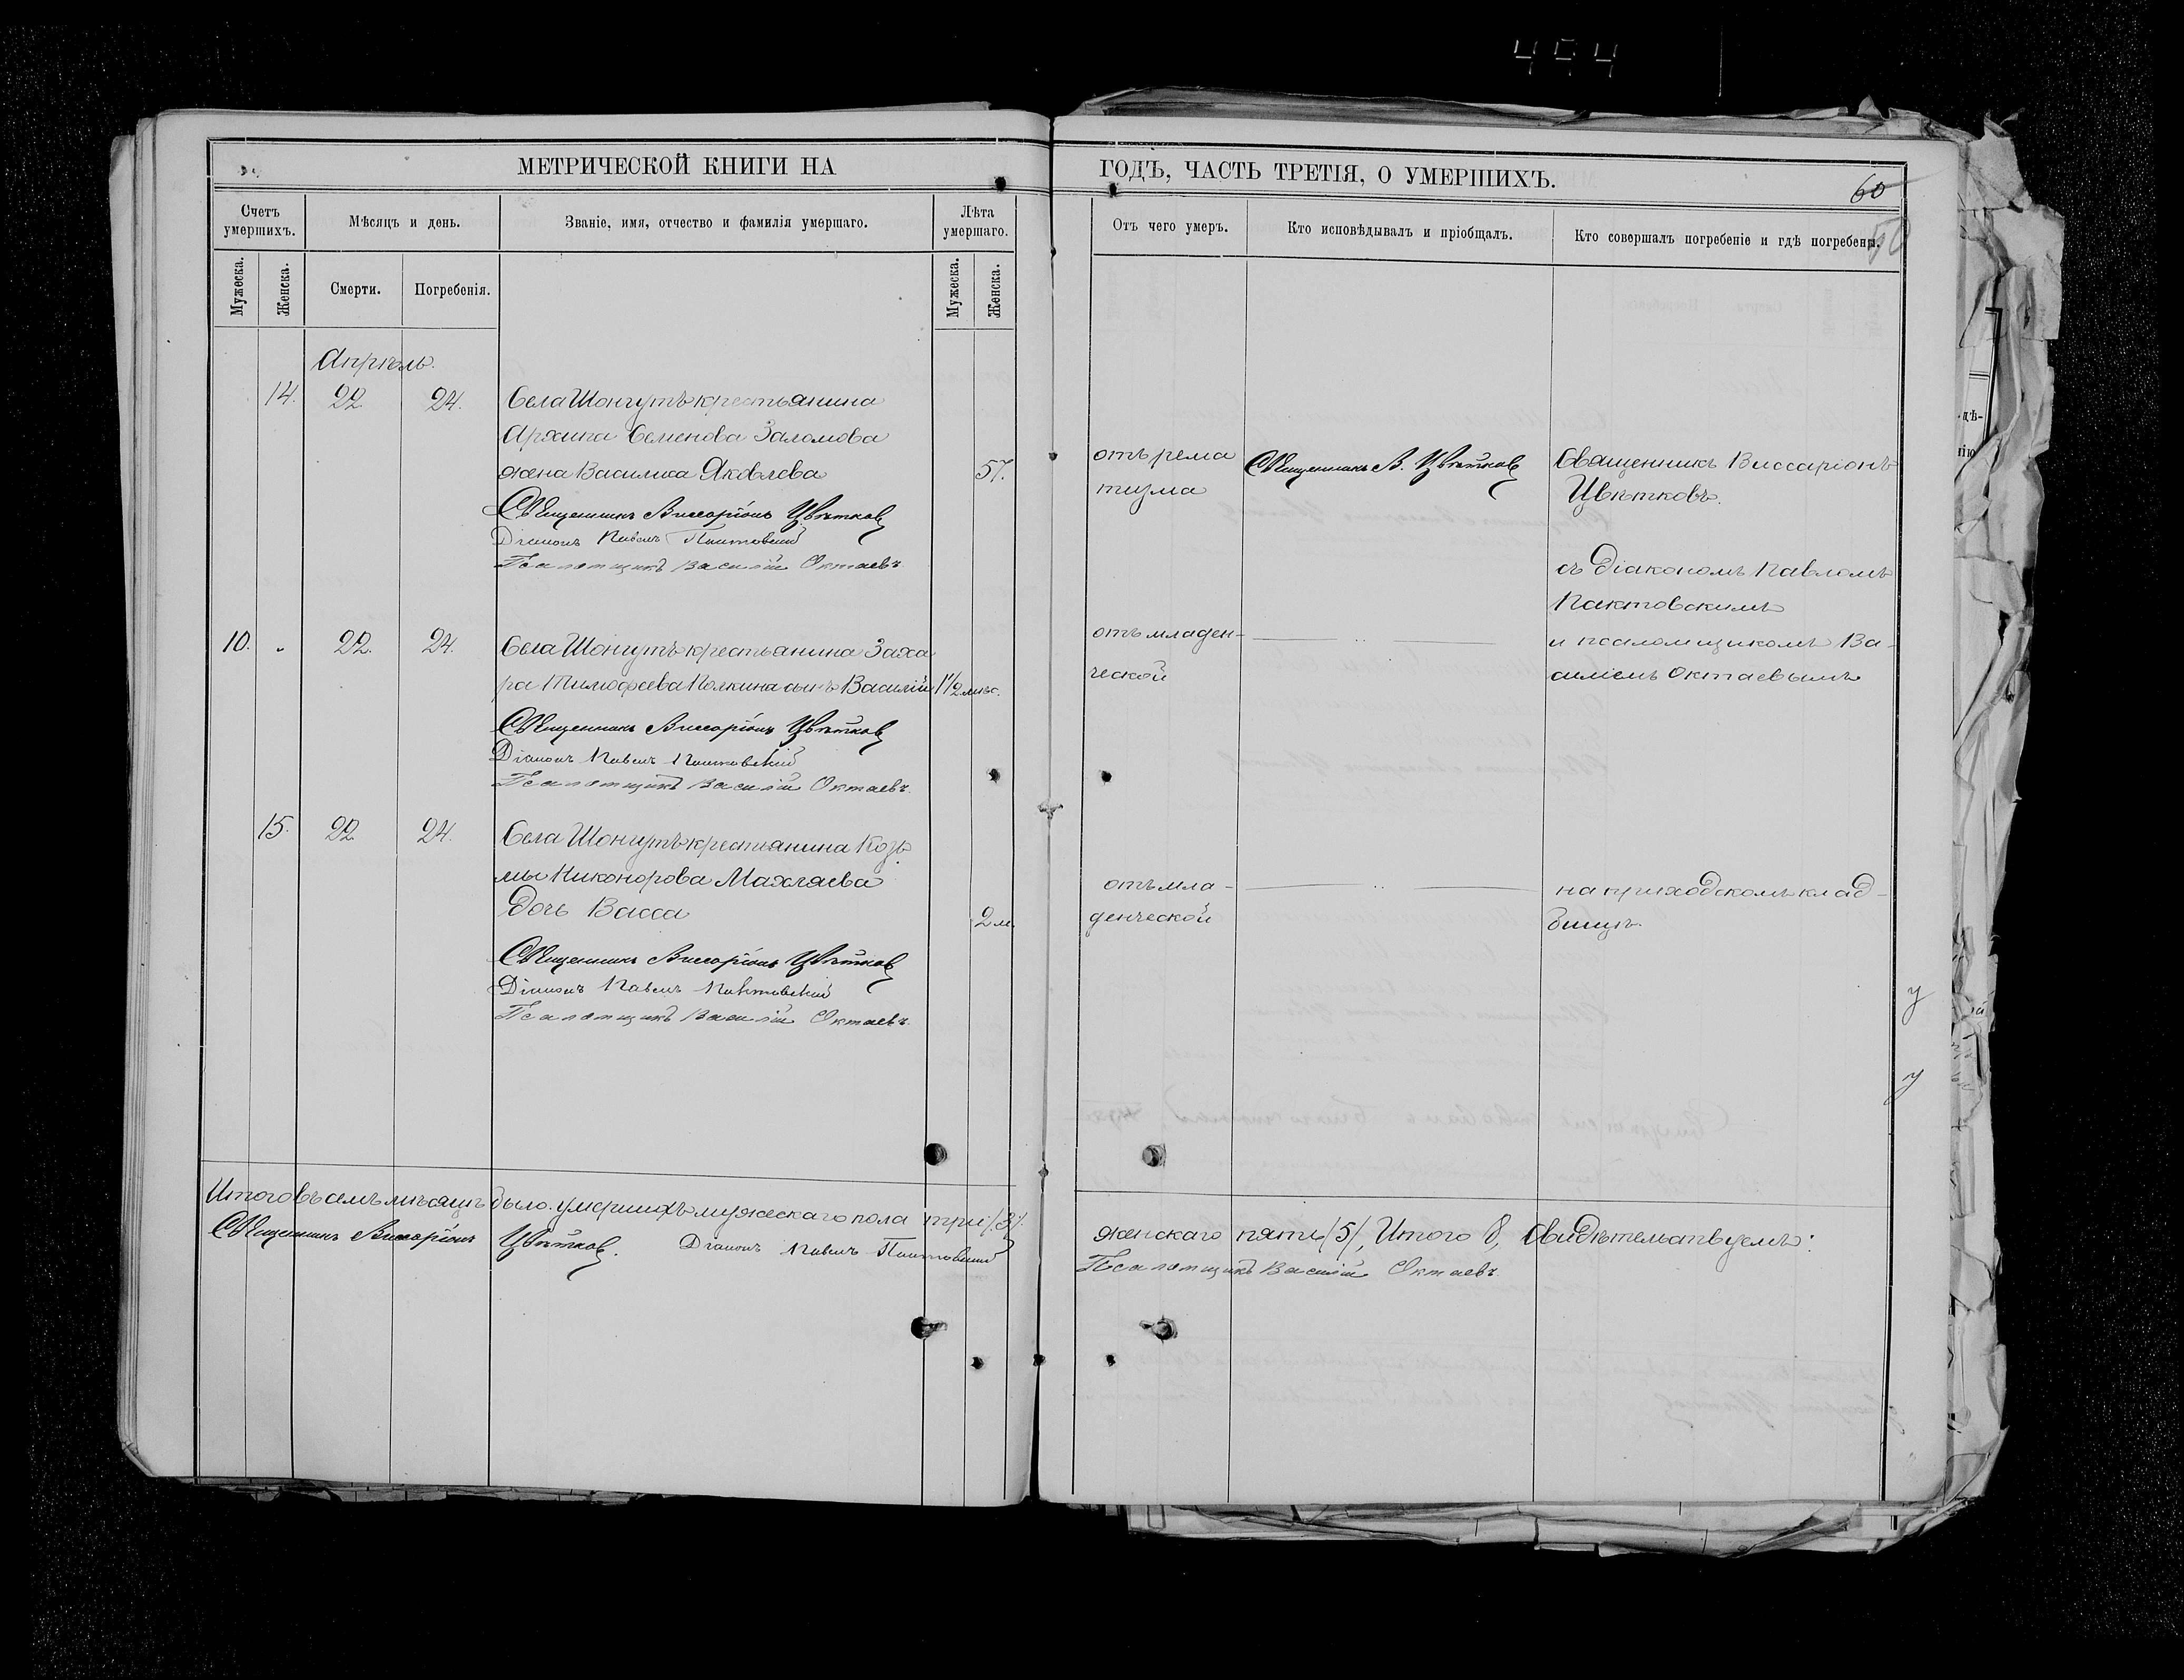 454
МЕТРИЧЕСКОЙ КНИГИ НА
ГОДЪ, ЧАСТЬ ТРЕТІЯ, О УМЕРШИХЪ.
60
50
Счетъ умершихъ.
Мѣсяцъ и день.
Званіе, имя, отчество и фамилія умершаго.
Лѣта умершаго.
Отъ чего умеръ.
Кто исповѣдывалъ и пріобщалъ.
Кто совершалъ погребеніе и гдѣ погребены.
Мужеска.
Женска.
Смерти.
Погребенія.
Мужеска.
Женска.
Апрѣль.
14. 22 24. Села Шонгутъ крестьянина
Архипа Семенова Заломова
жена Василиса Яковлева 57.
Священникъ Виссаріонъ Цвѣтковъ
Діаконъ Павелъ Пактовскій
Псаломщикъ Василій Октаевъ
отъ рема
тизма
Священникъ В. Цвѣтковъ
Священникъ Виссаріонъ
Цвѣтковъ.
съ Діакономъ Павломъ
Пактовскимъ
и псаломщикомъ Ва-
силіемъ Октаевымъ
10. " 22. 24. Села Шонгутъ крестьянина Заха
ра Тимофеева Полкина сынъ Василій 1 1/2 мѣс.
Священникъ Виссаріонъ Цвѣтковъ
Діаконъ Павелъ Пактовскій
Псаломщикъ Василій Октаевъ.
отъ младен-
ческой
15. 22 24. Села Шонгутъ крестьянина Козь
мы Никонорова Махляева
дочь Васса 2 м.
Священникъ Виссаріонъ Цвѣтковъ
Діаконъ Павелъ Пактовскій
Псаломщикъ Василій Октаевъ.
отъ мла-
денческой
на приходскомъ клад-
бищѣ.
у
у
Итого въ семъ мѣсяцѣ было умершихъ мужескаго пола три /3/.
женскаго пять /5/, Итого 8, Свидѣтельствуемъ:
Священникъ Виссаріонъ Цвѣтковъ. Діаконъ Павелъ Пактовскій
Псаломщикъ Василій Октаевъ.